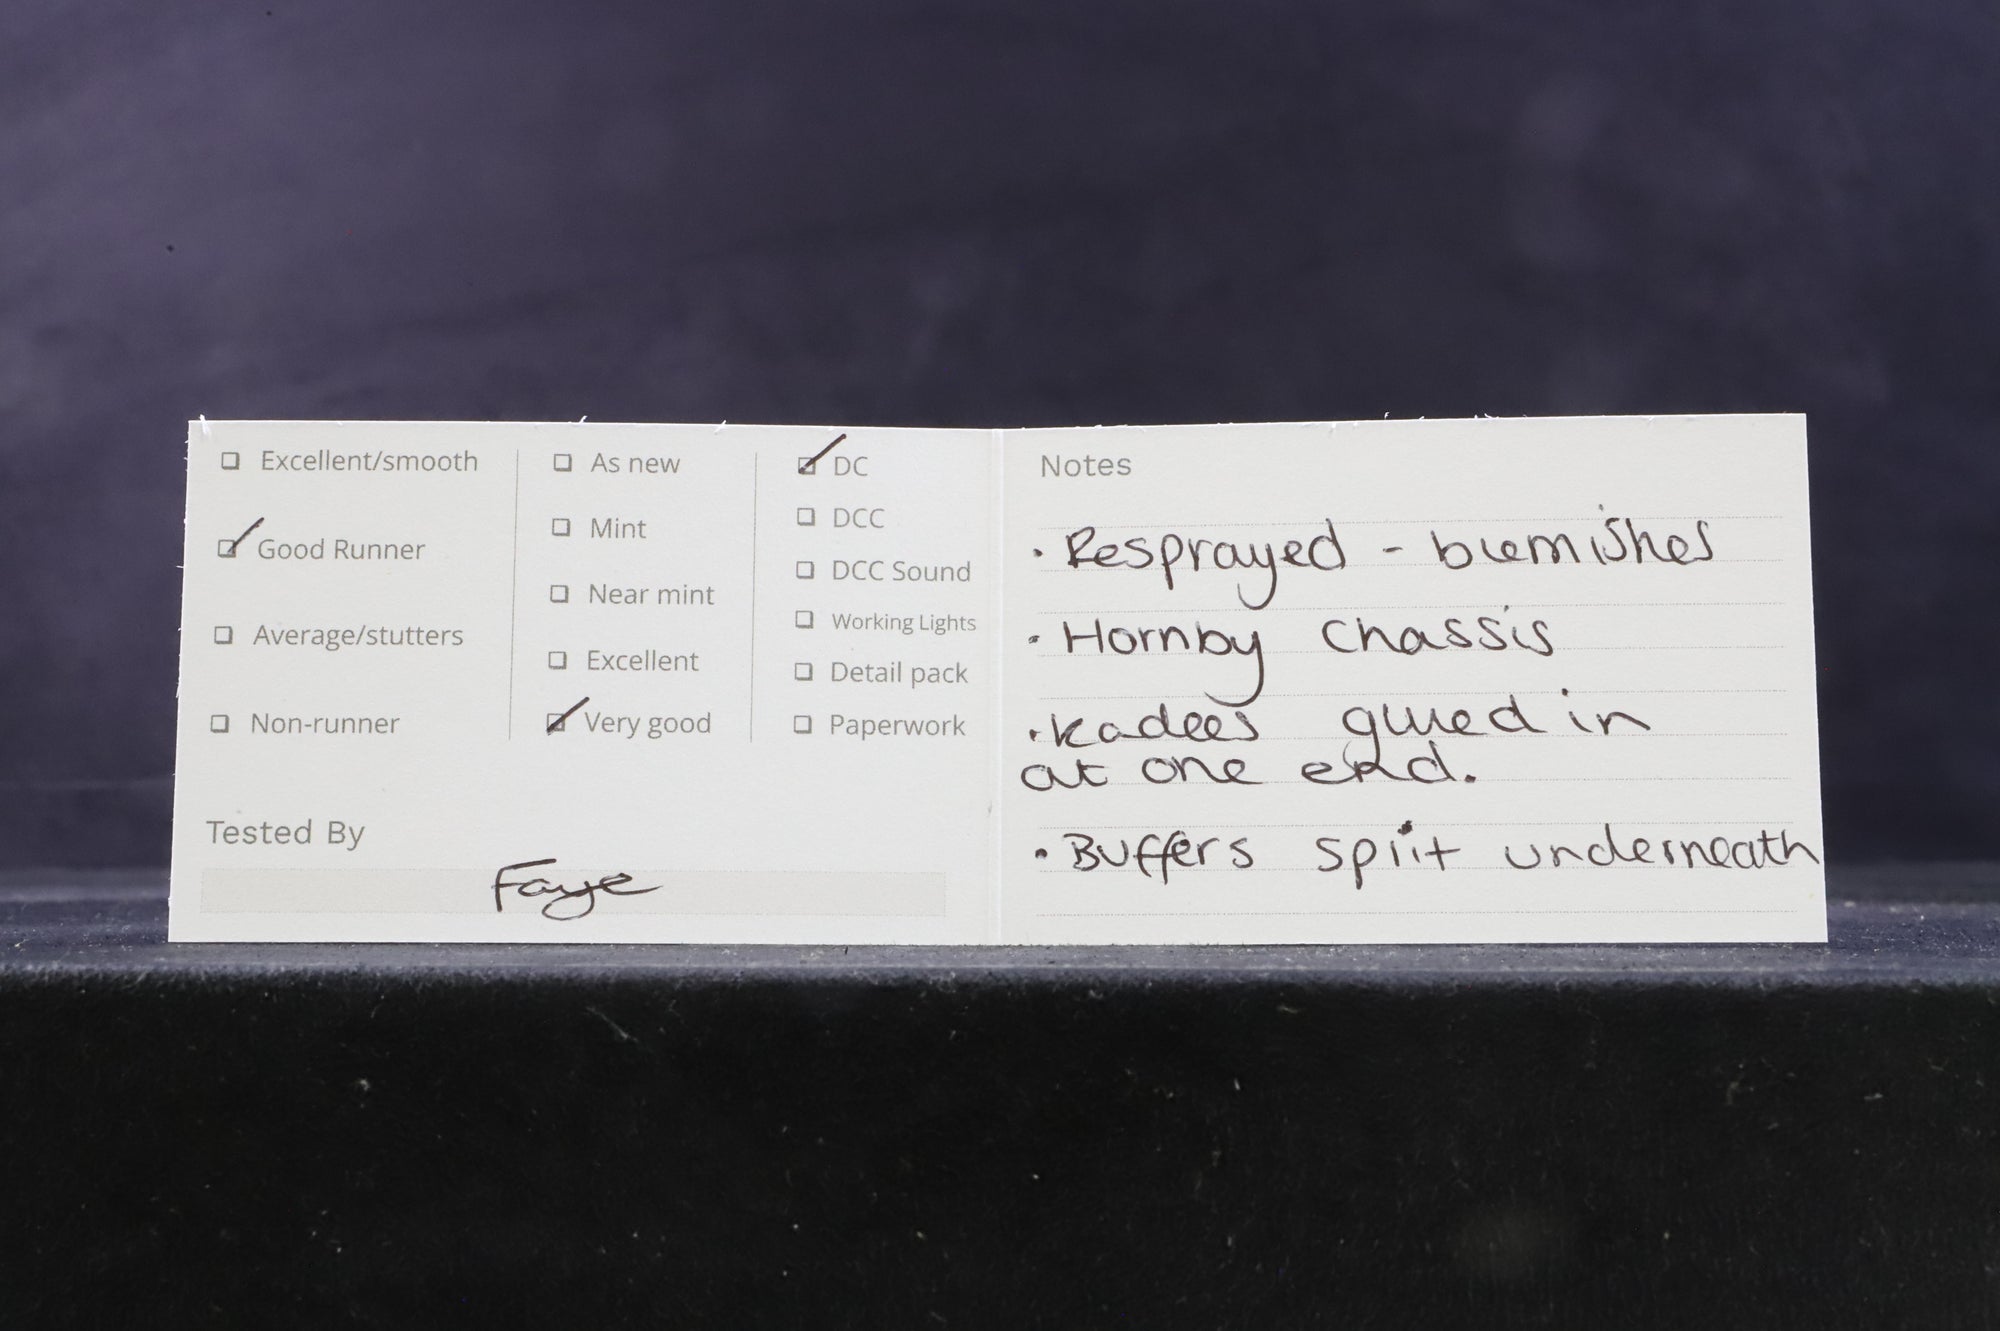 Excellent/smooth
Good Runner
Average/stutters
Non-runner
As new
Mint
Near mint
Excellent
Very good
DC
DCC
DCC Sound
Working Lights
Detail pack
Paperwork
Tested By
Faye
Notes
· Resprayed - blemishes
· Hornby chassis
· Kadees glued in
at one end.
· Buffers split underneath